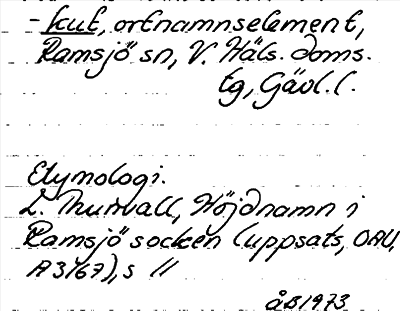 - kut, ortnamnselement,
Ramsjö sn, V. Häls. doms.
tg, Gävl. l.
Etymologi.
L. Murvall, Höjdnamn i
Ramsjö socken (uppsats, OAU,
A 3167), s 11
åB 1973